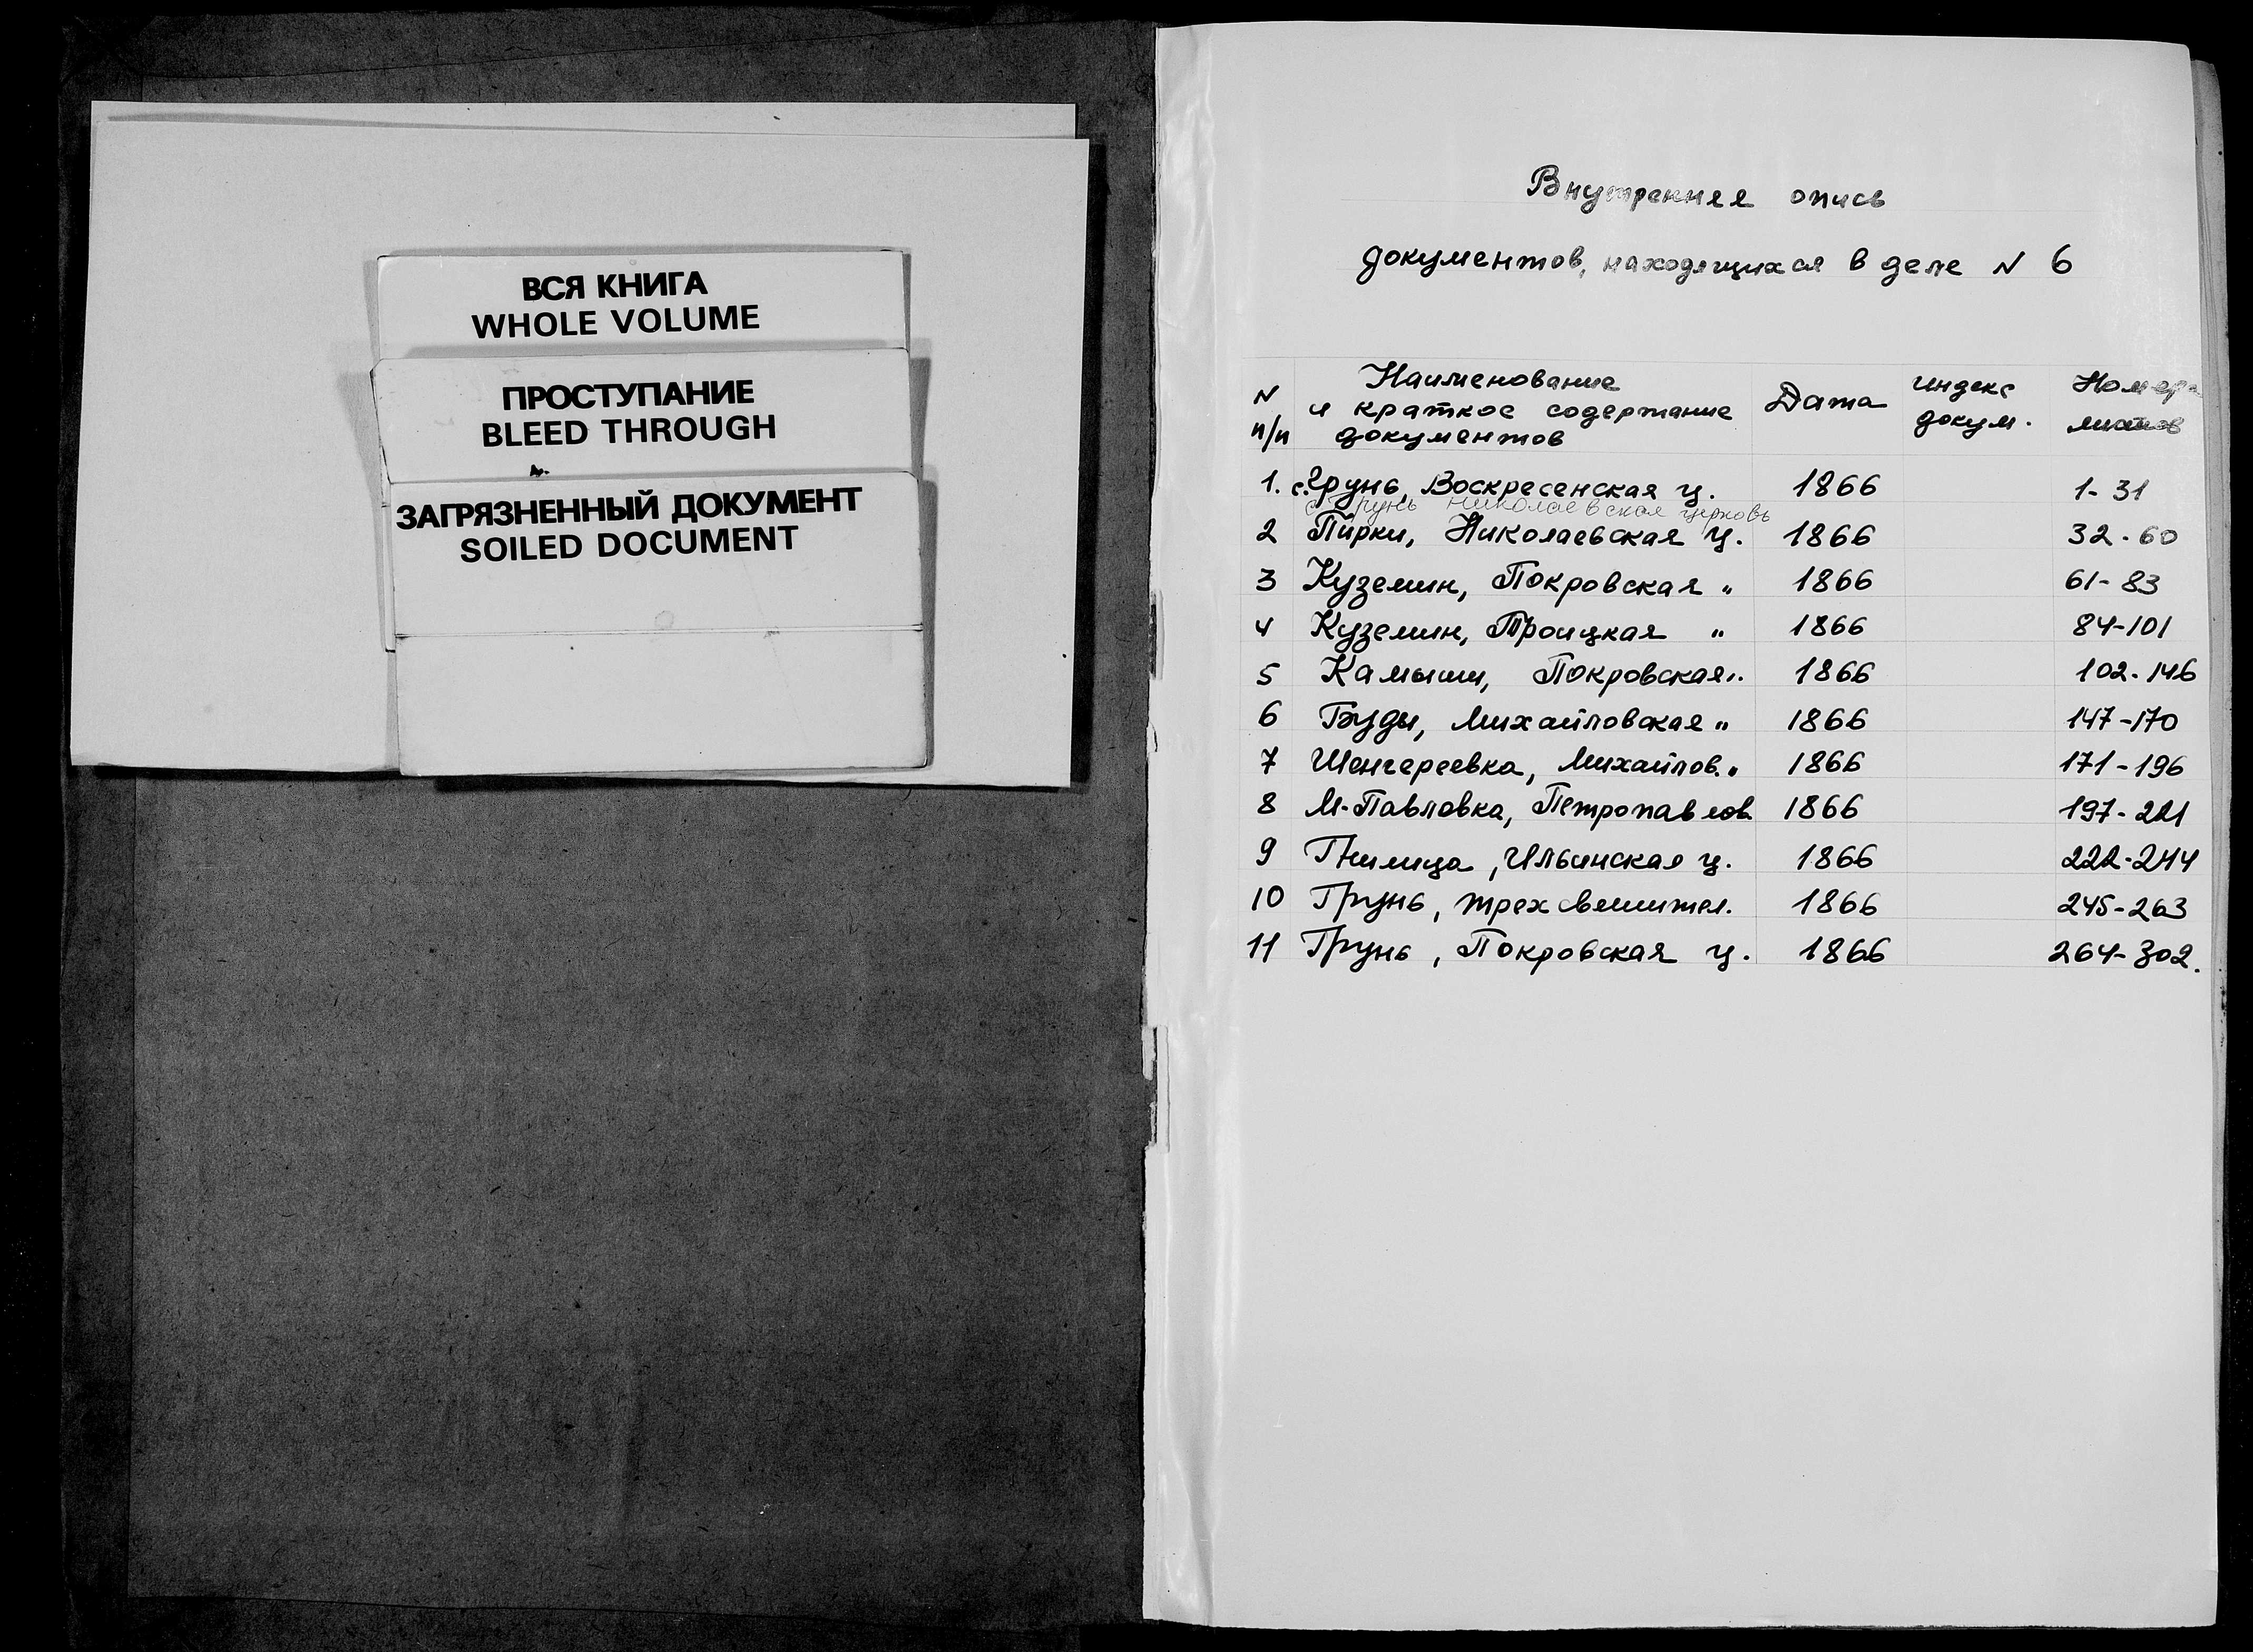 ВСЯ КНИГА
WHOLE VOLUME
ПРОСТУПАНИЕ
BLEED THROUGH
ЗАГРЯЗНЕННЫЙ ДОКУМЕНТ
SOILED DOCUMENT
Внутренняя опись
документов, находящихся в деле N 6
N п/п Наименование и краткое содержание документов Дата индекс докум. Номера листов
1. с. Грунь, Воскресенская ц. 1866 1-31
с. Грунь Николаевская церковь
2 Пирки, Николаевская ц. 1866 32-60
3 Куземин, Покровская " 1866 61-83
4 Куземин, Троицкая " 1866 84-101
5 Камыши, Покровская " 1866 102-146
6 Буды, Михайловская " 1866 147-170
7 Шенгереевка, Михайлов. " 1866 171-196
8 М-Павловка, Петропавлов 1866 197-221
9 Гнилица, Ильинская ц. 1866 222-244
10 Грунь, трех 1866 245-263
11 Грунь, Покровская ц. 1866 264-302.